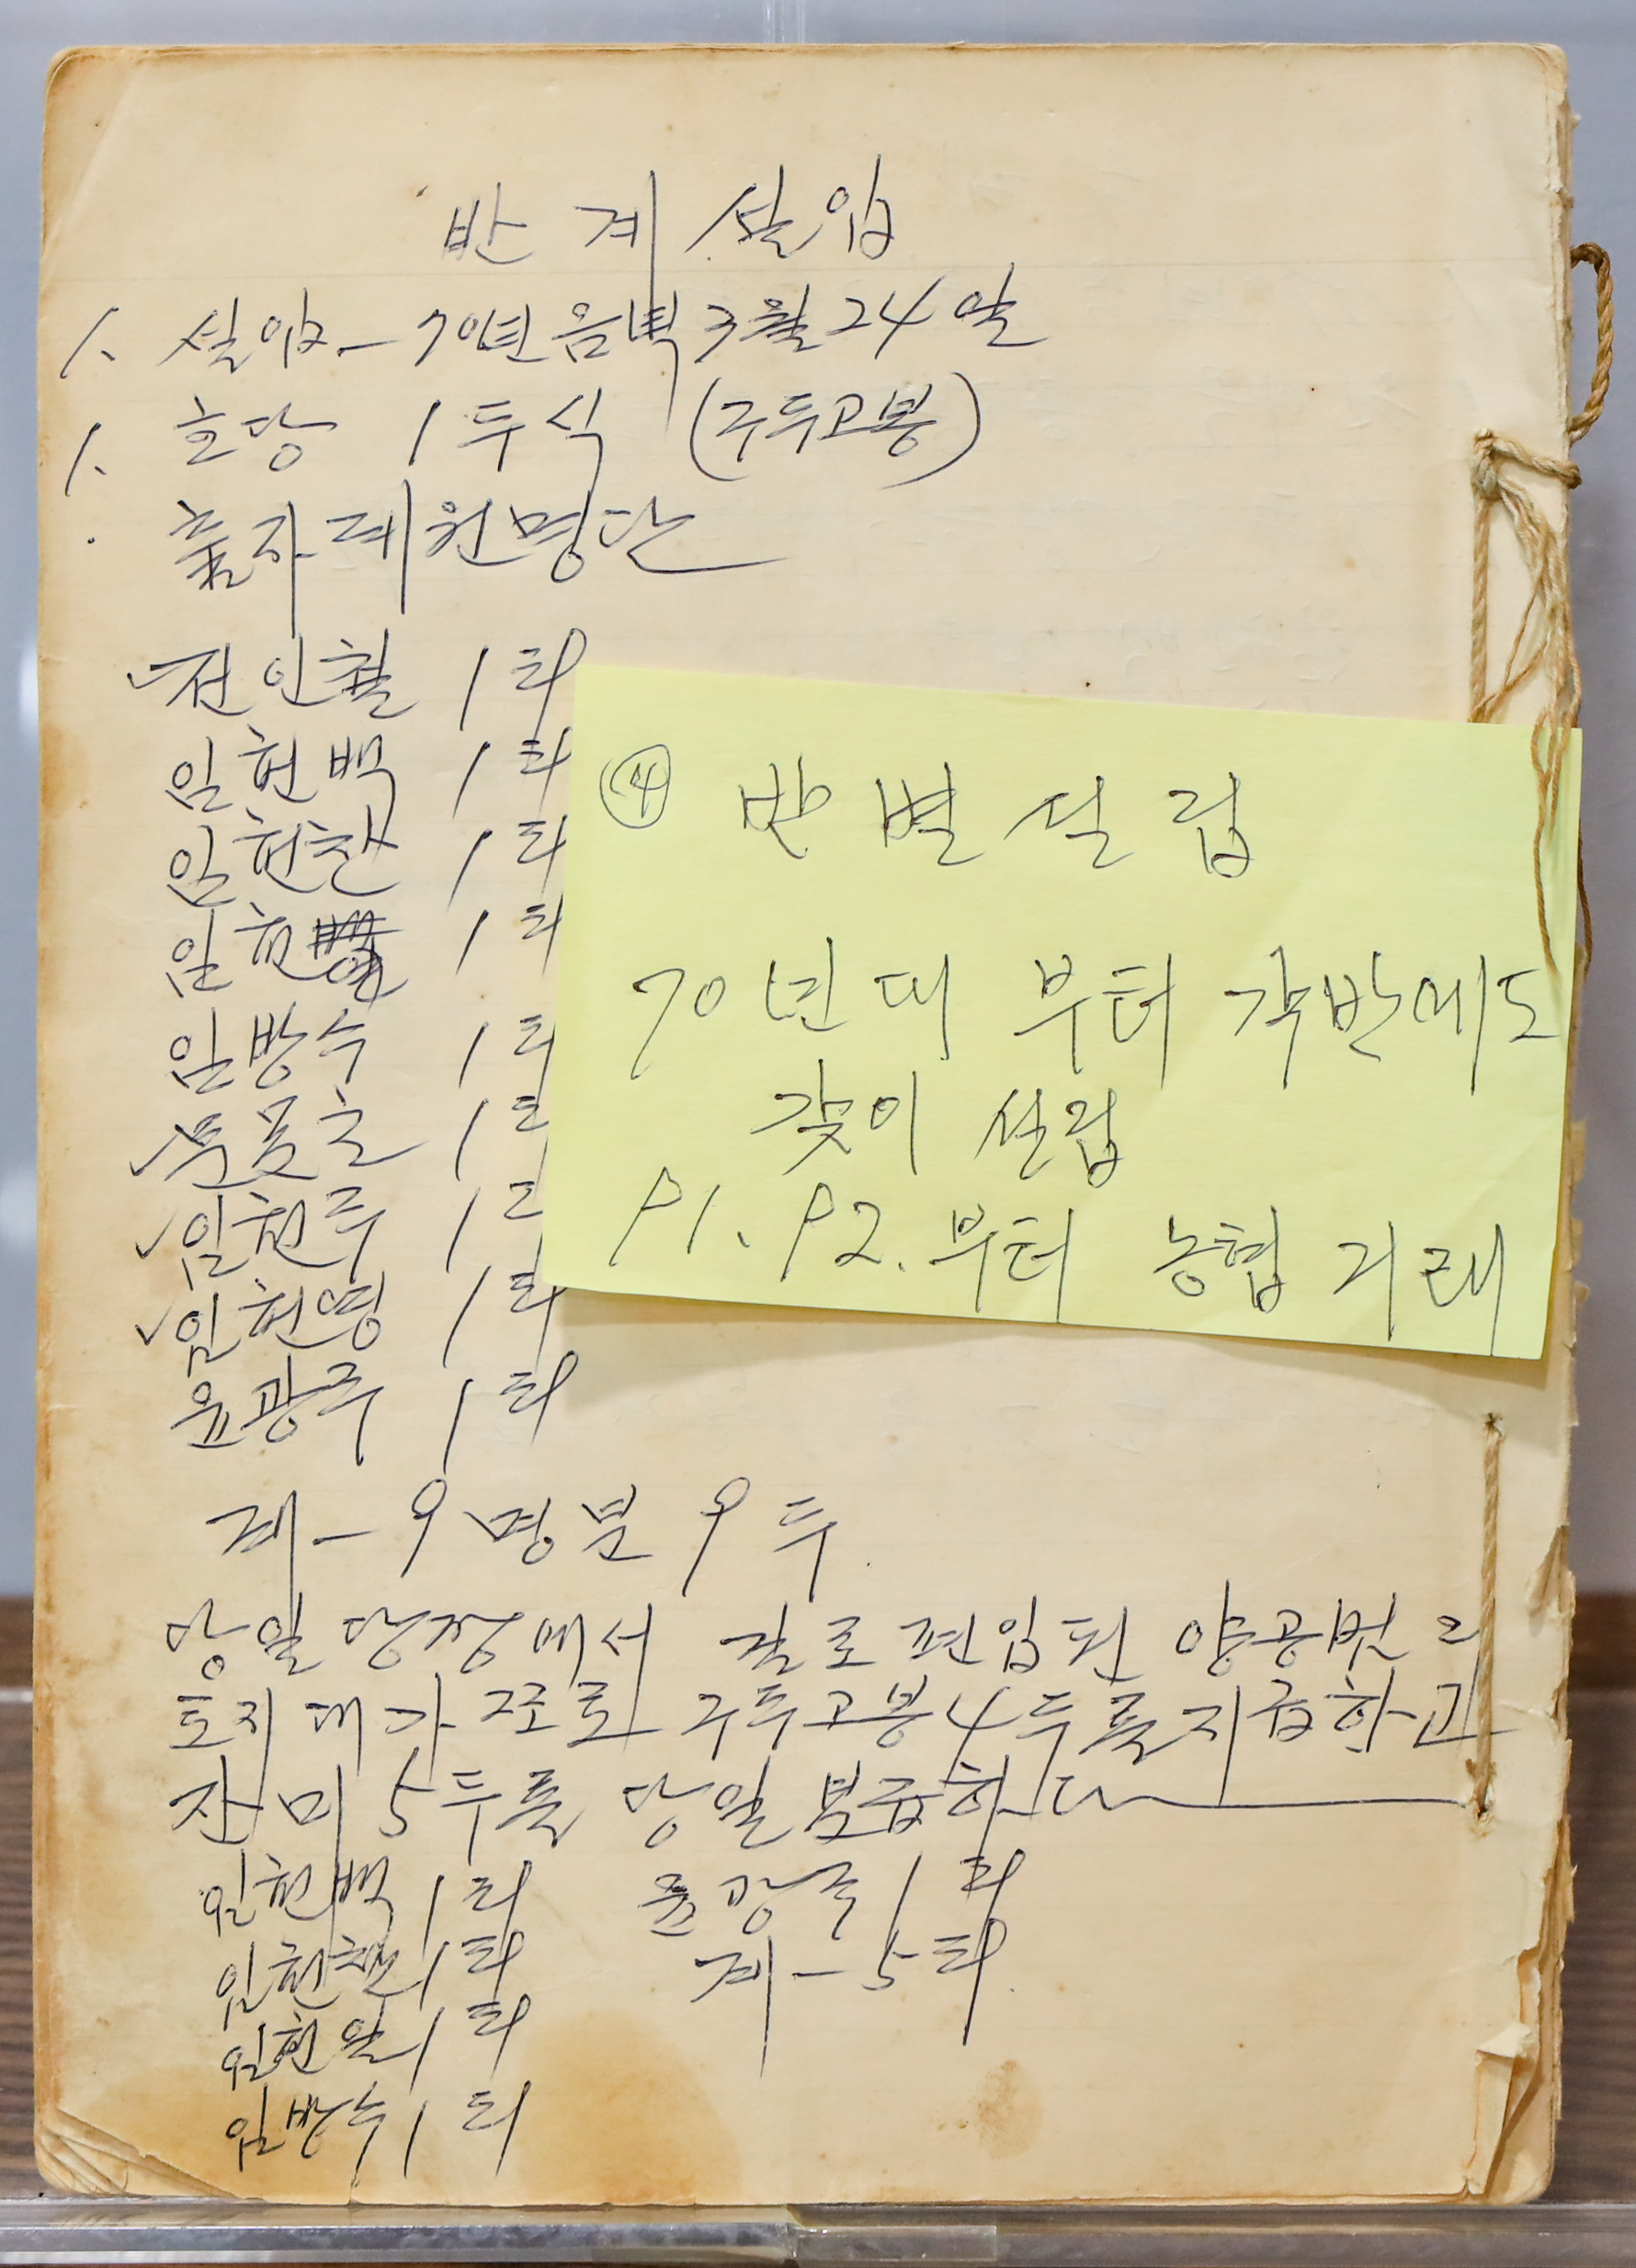 반계설입
1. 설입 - 70년 음력 3월 24일
1. 호당 1두식 (구두고봉)
. 출자계원명단
전인철 1되
임헌백 1되
임헌찬 1되
임헌일 1되
임방수 1되
1되
임헌주 1되
임헌영 1되
윤광주 1되
계 - 9명분 9두.
당일 당장에서 길로 편입된 양공번
토지대가조로 구두고봉 4두를 지급하고
잔미 5두를 당일 분급하다
임헌백 1되 윤광주 1되
임헌찬 1되 계 - 5되.
임헌일 1되
임방수 1되
④ 반별설립
70년대 부터 각반에도
갖이 설립
P1. P2. 부터 농협 거래